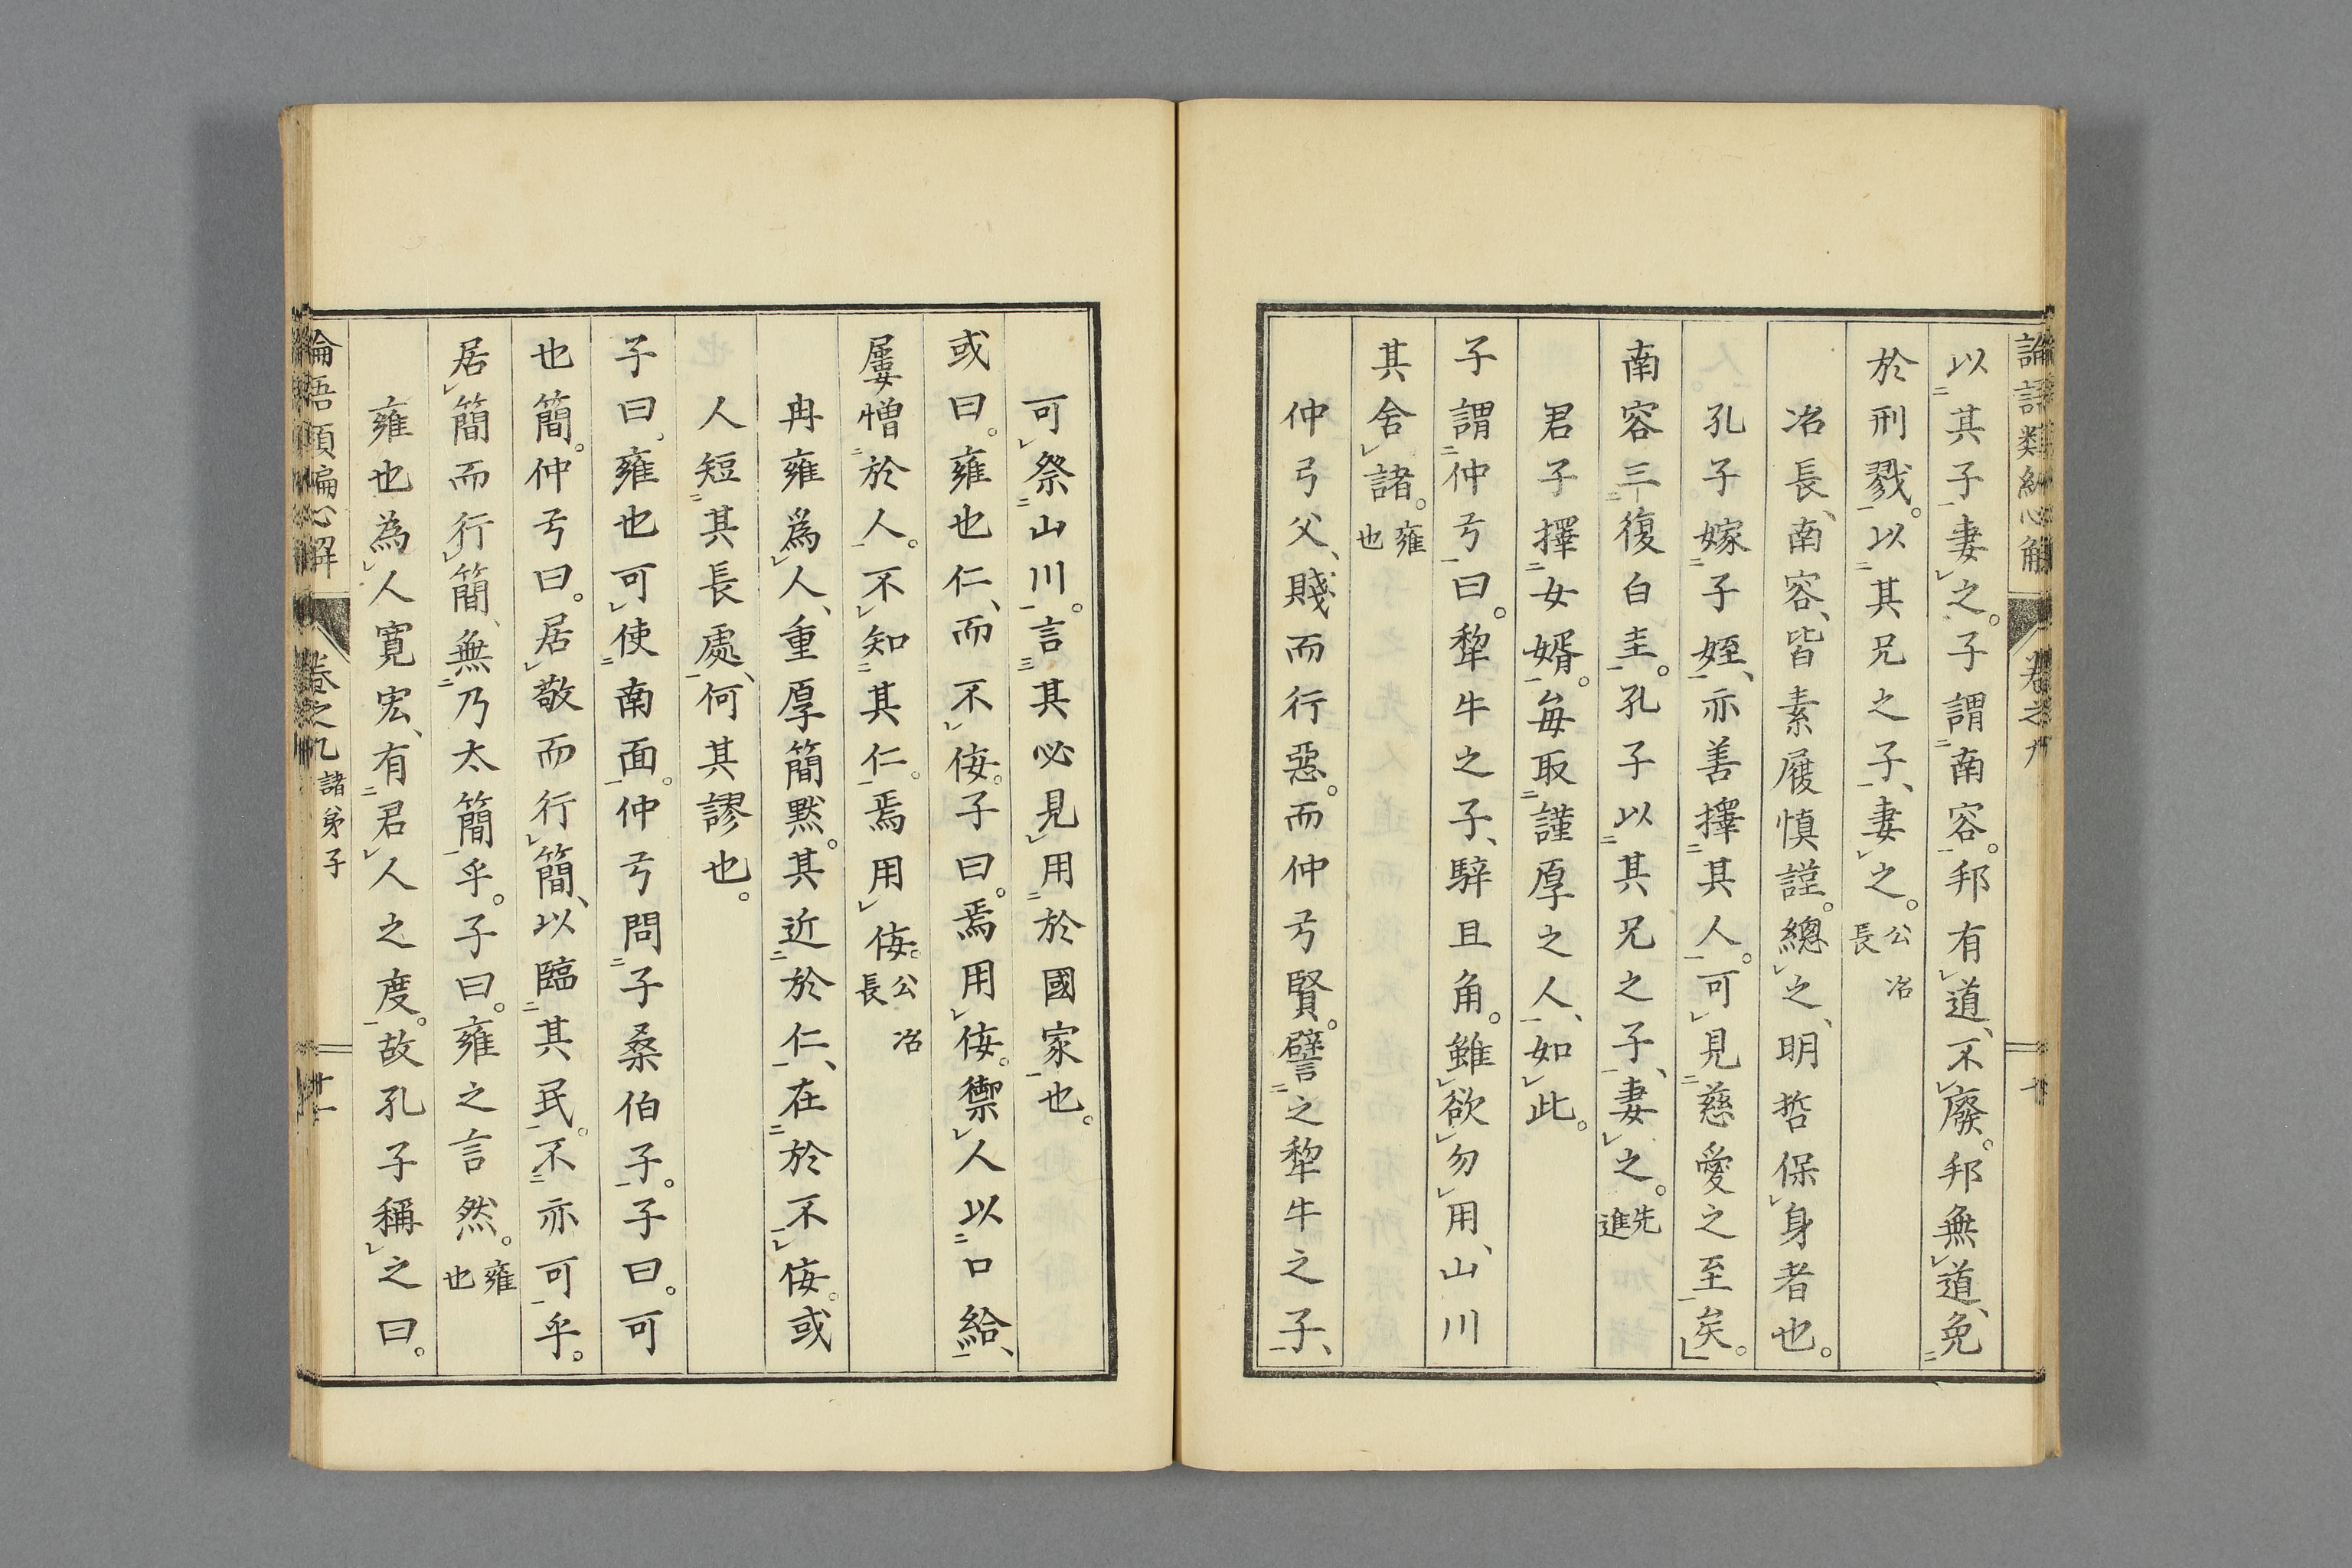 論語類編心解 卷之九
以其子妻之。子謂南容。邦有道、不廢。邦無道、免
於刑戮。以其兄之子、妻之。公冶長
冶長、南容、皆素履慎謹。總之、明哲保身者也。
孔子嫁子姪、亦善擇其人。可見慈愛之至矣。」
南容三復白圭。孔子以其兄之子、妻之。先進
君子擇女婿。每取謹厚之人、如此。
子謂仲弓曰。犂牛之子、騂且角。雖欲勿用、山川
其舍諸。雍也
仲弓父、賤而行惡。而仲弓賢。譬之犂牛之子、
可祭山川。言其必見用於國家也。
或曰。雍也仁、而不侫。子曰。焉用侫。禦人以口給、
屢憎於人。不知其仁。焉用侫。公冶長
冉雍爲人、重厚簡默。其近於仁、在於不侫。或
人短其長處、何其謬也。
子曰、雍也可使南面。仲弓問子桑伯子。子曰。可
也簡。仲弓曰。居敬而行簡、以臨其民。不亦可乎。
居簡而行簡、無乃太簡乎。子曰。雍之言然。雍也
雍也為人寛宏、有君人之度。故孔子稱之曰。
論語類編心解 卷之九 諸弟子 廿一